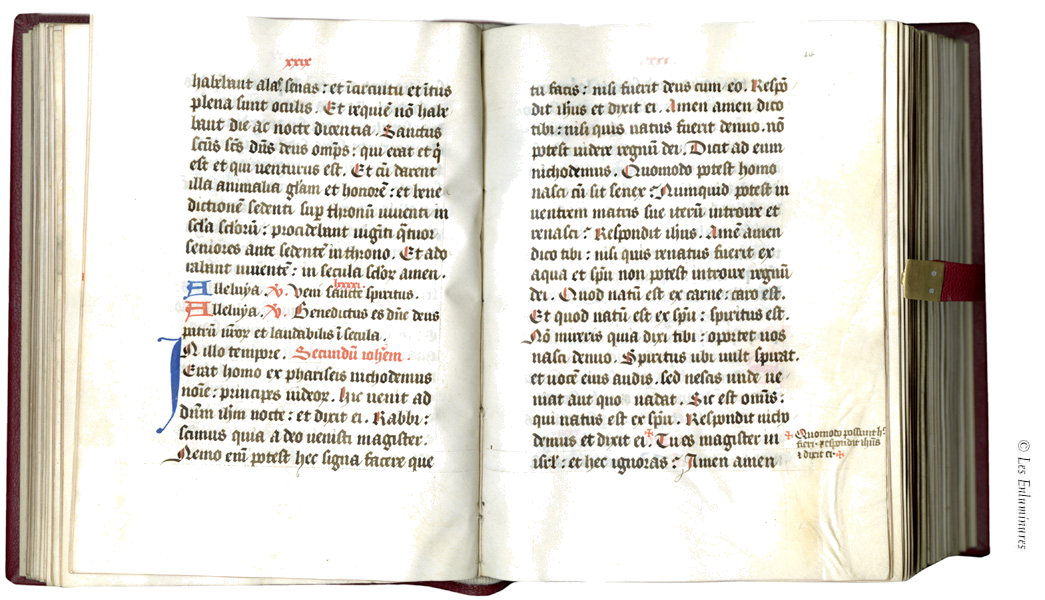 xxix
habebant alas senas : et ī circuitu et ītus
plena sunt oculis . Et requiē nō habe
bant die ac nocte dicentia . Sanctus
scūs scs dn̄s deus omp̄s : qui erat et q̄
est et qui uenturus est . Et cū darent
illa animalia glam et honorē : et bene
dictionē sedenti sup thronū uiuenti in
scla sclorū : procidebant uiginti q̄tuor
seniores ante sedentē in throno . Et ado
rabant uiuentē : in secula sclor amen .
Alleluya . V . Veni sancte spiritus .
Alleluya . V . Benedictus es dn̄e deus
patrū nr̄or et laudabilis ī secula .
In illo tempore . Secundū ioh̄em .
Erat homo ex phariseis nichodemus
noīe : princeps iudeor . Hic uenit ad
dn̄m ih̄m nocte : et dixit ei . Rabbi :
scimus quia a deo uenisti magister .
Nemo em̄ potest hec signa facere que
tu facis : nisi fuerit deus cum eo . Respō
dit ih̄us et dixit ei . Amen amen dico
tibi : nisi quis natus fuerit denuo . nō
potest uidere regnū dei . Dicit ad eum
nichodemus . Quomodo potest homo
nasci cū sit senex ? Numquid potest in
uentrem matris sue iterū introire et
renasci ? Respondit ih̄us . Amē amen
dico tibi : nisi quis renatus fuerit ex
aqua et sp̄u non potest introire regnū
dei . Quod natū est ex carne : caro est .
Et quod natū est ex sp̄u : spiritus est .
Nō mireris quia dixi tibi : oportet uos
nasci denuo . Spiritus ubi uult spirat .
et uocē eius audis . sed nescis unde ue
niat aut quo uadat . Sic est omīs :
qui natus est ex sp̄u . Respondit nicho
demus et dixit ei . Tu es magister in
isrl : et hec ignoras ? Amen amen
Quomodo possunt h̄
fieri . respondit ih̄us
et dixit ei .
© Les Enluminures